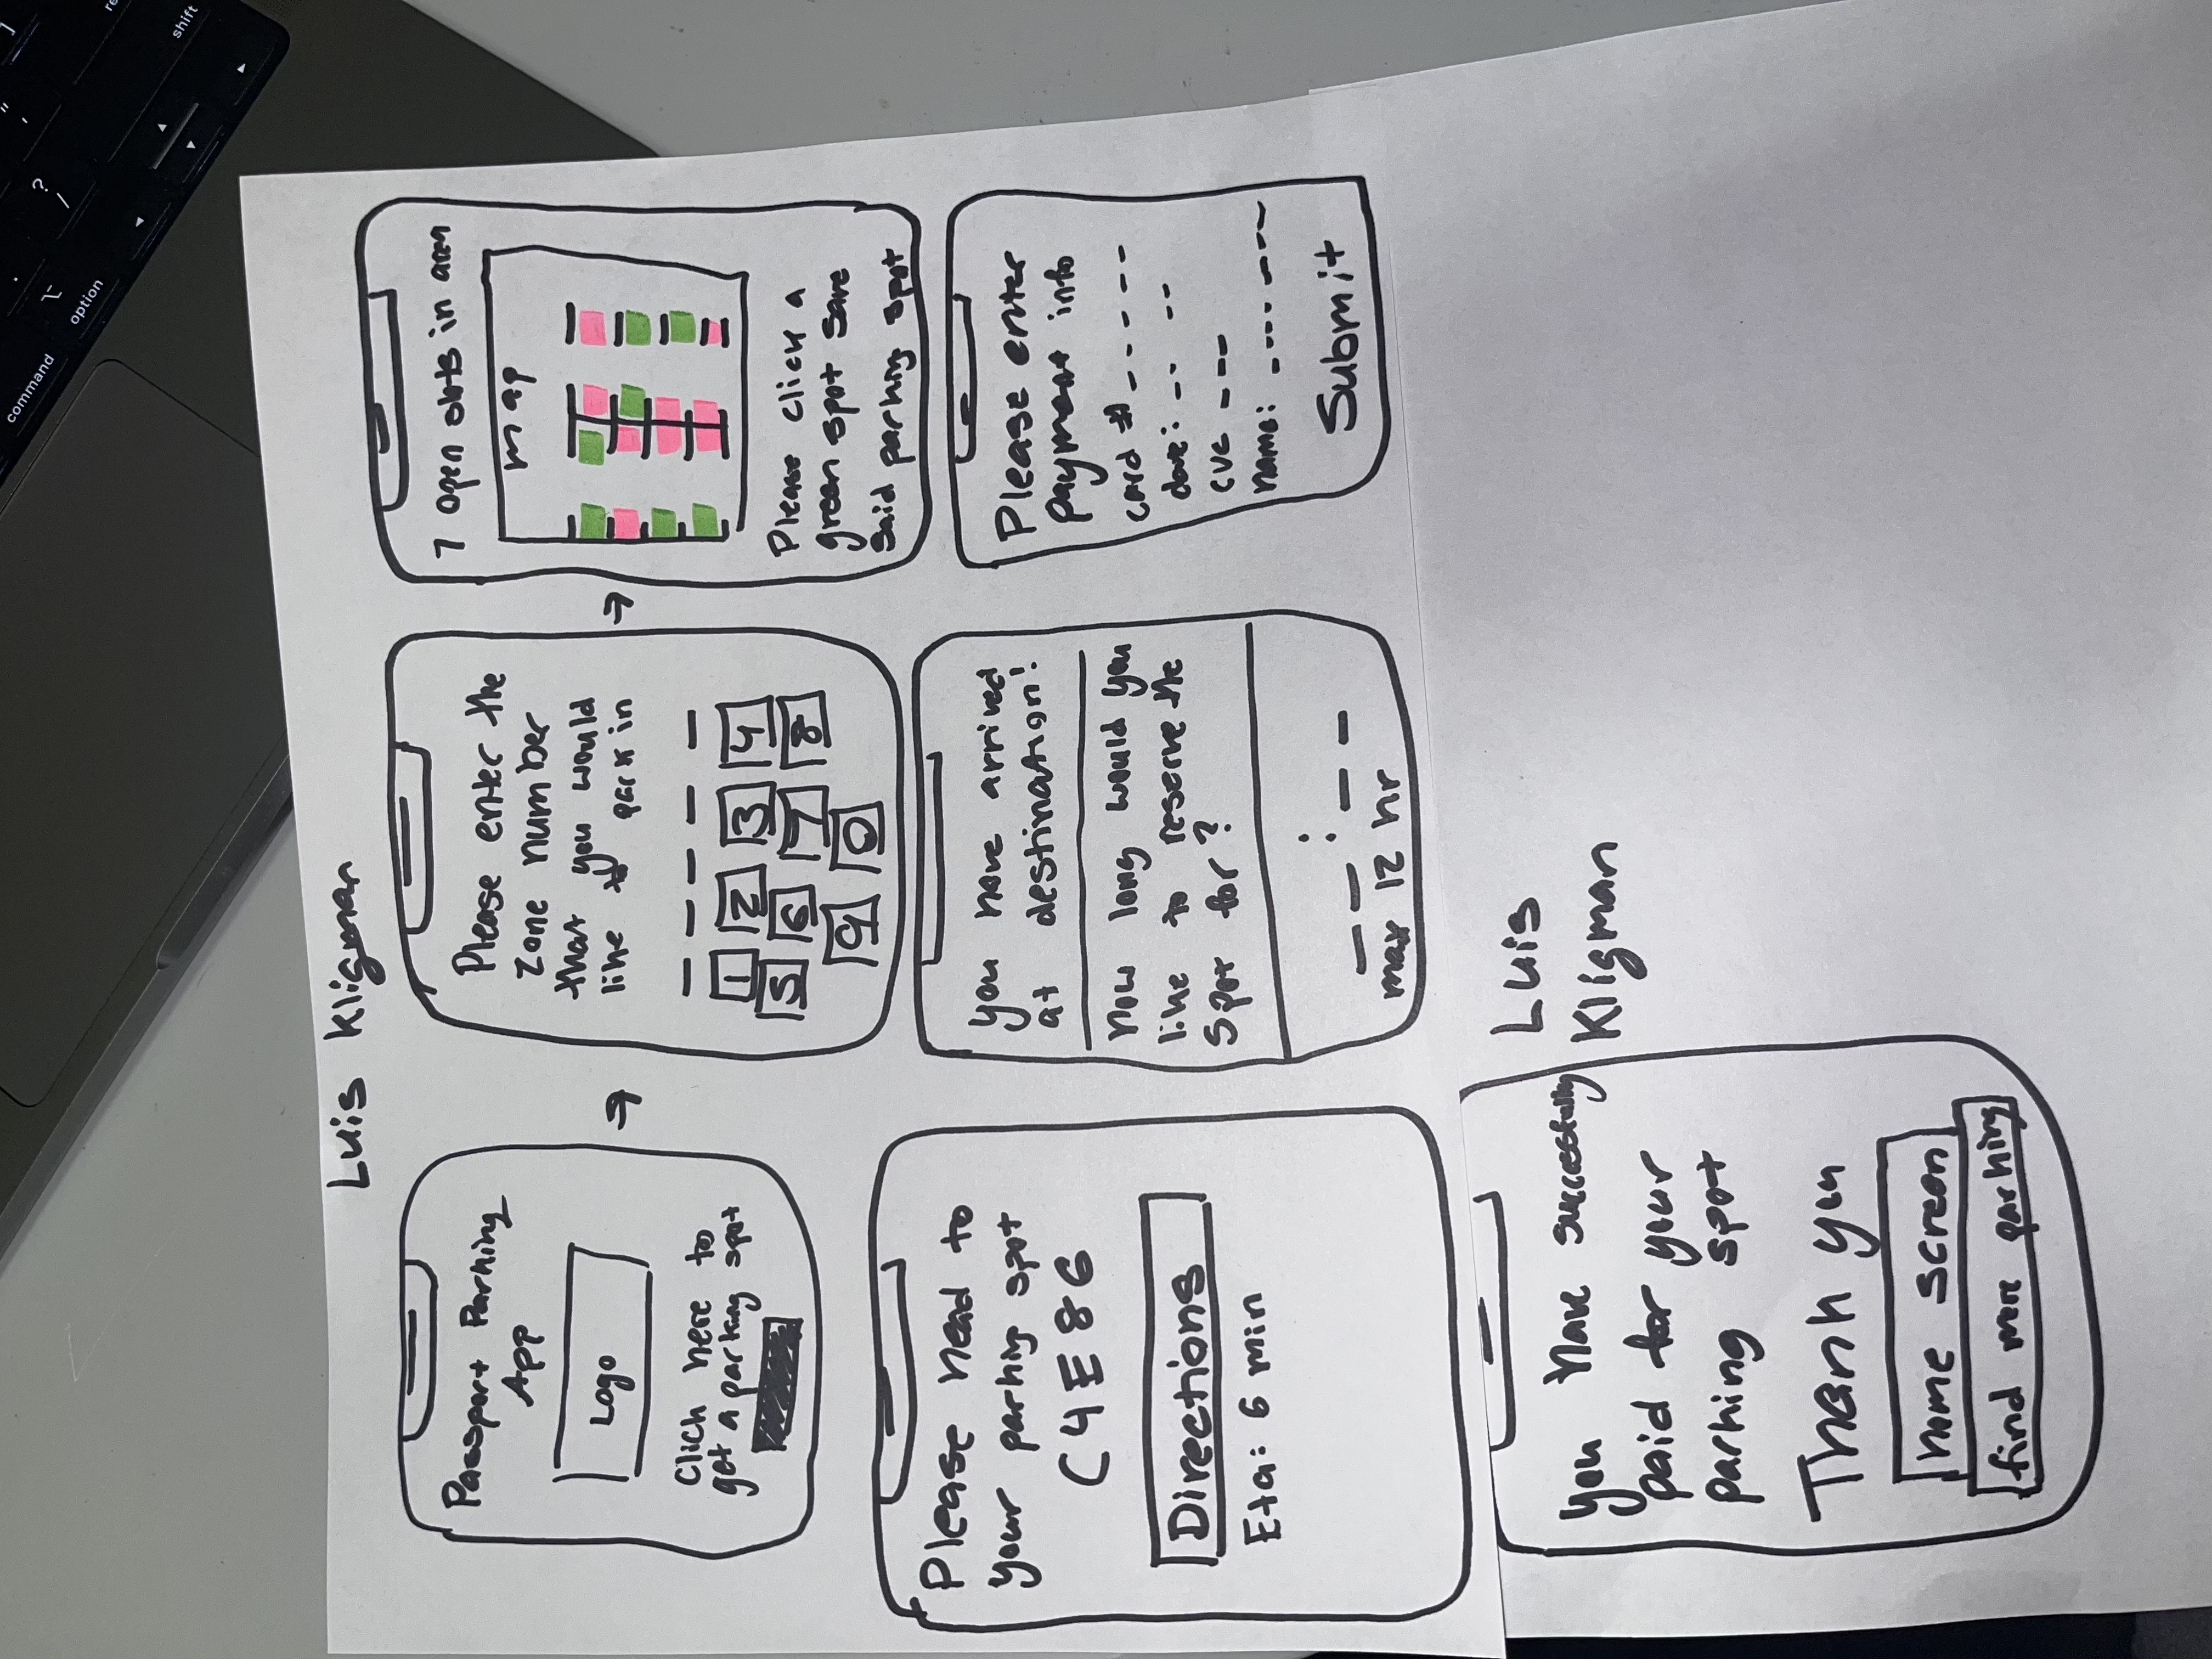 command
option
?
/
"
'
]
.
shift
Luis Kligman
Passport Parking
App
Logo
Click here to
get a parking spot
Please enter the
Zone number
that you would
like to park in
1 2 3 4
5 6 7 8
9 0
7 open slots in area
map
Please click a
green spot save
said parking spot
Please head to
your parking spot
C4E86
Directions
Eta: 6 min
you have arrived
at destination!
how long would you
like to reserve the
Spot for?
:
max 12 hr
Please enter
payment info
card #
date:
cvc
name:
Submit
you have successfully
paid for your
parking spot
Thank you
home screen
find more parking
Luis
Kligman